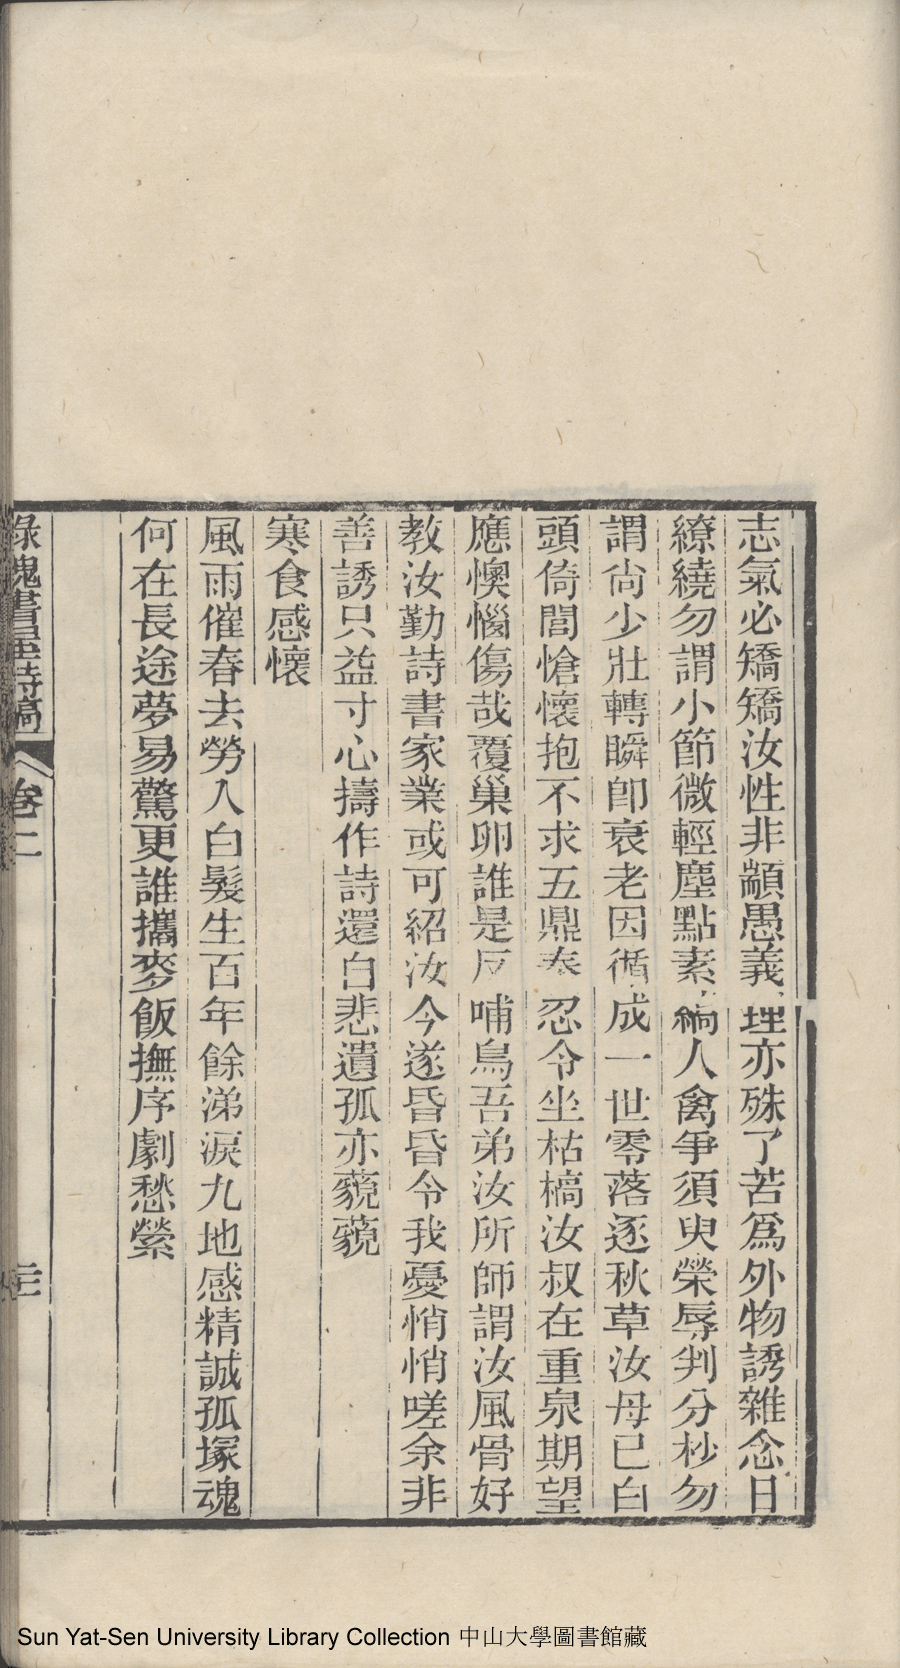 志氣必矯矯汝性非顓愚義理亦殊了苦爲外物誘雜念日
繚繞勿謂小節微輕塵點素縞人禽爭須臾榮辱判分杪勿
謂尙少壯轉瞬卽衰老因循成一世零落逐秋草汝母已白
頭倚閭愴懷抱不求五鼎養忍令坐枯槁汝叔在重泉期望
應懊惱傷哉覆巢卵誰是反哺鳥吾弟汝所師謂汝風骨好
教汝勤詩書家業或可紹汝今遂昏昏令我憂悄悄嗟余非
善誘只益寸心擣作詩還自悲遺孤亦藐藐
寒食感懷
風雨催春去勞人白髮生百年餘涕淚九地感精誠孤塚魂
何在長途夢易驚更誰攜麥飯撫序劇愁縈
綠槐書屋詩稿 卷二
Sun Yat-Sen University Library Collection 中山大學圖書館藏